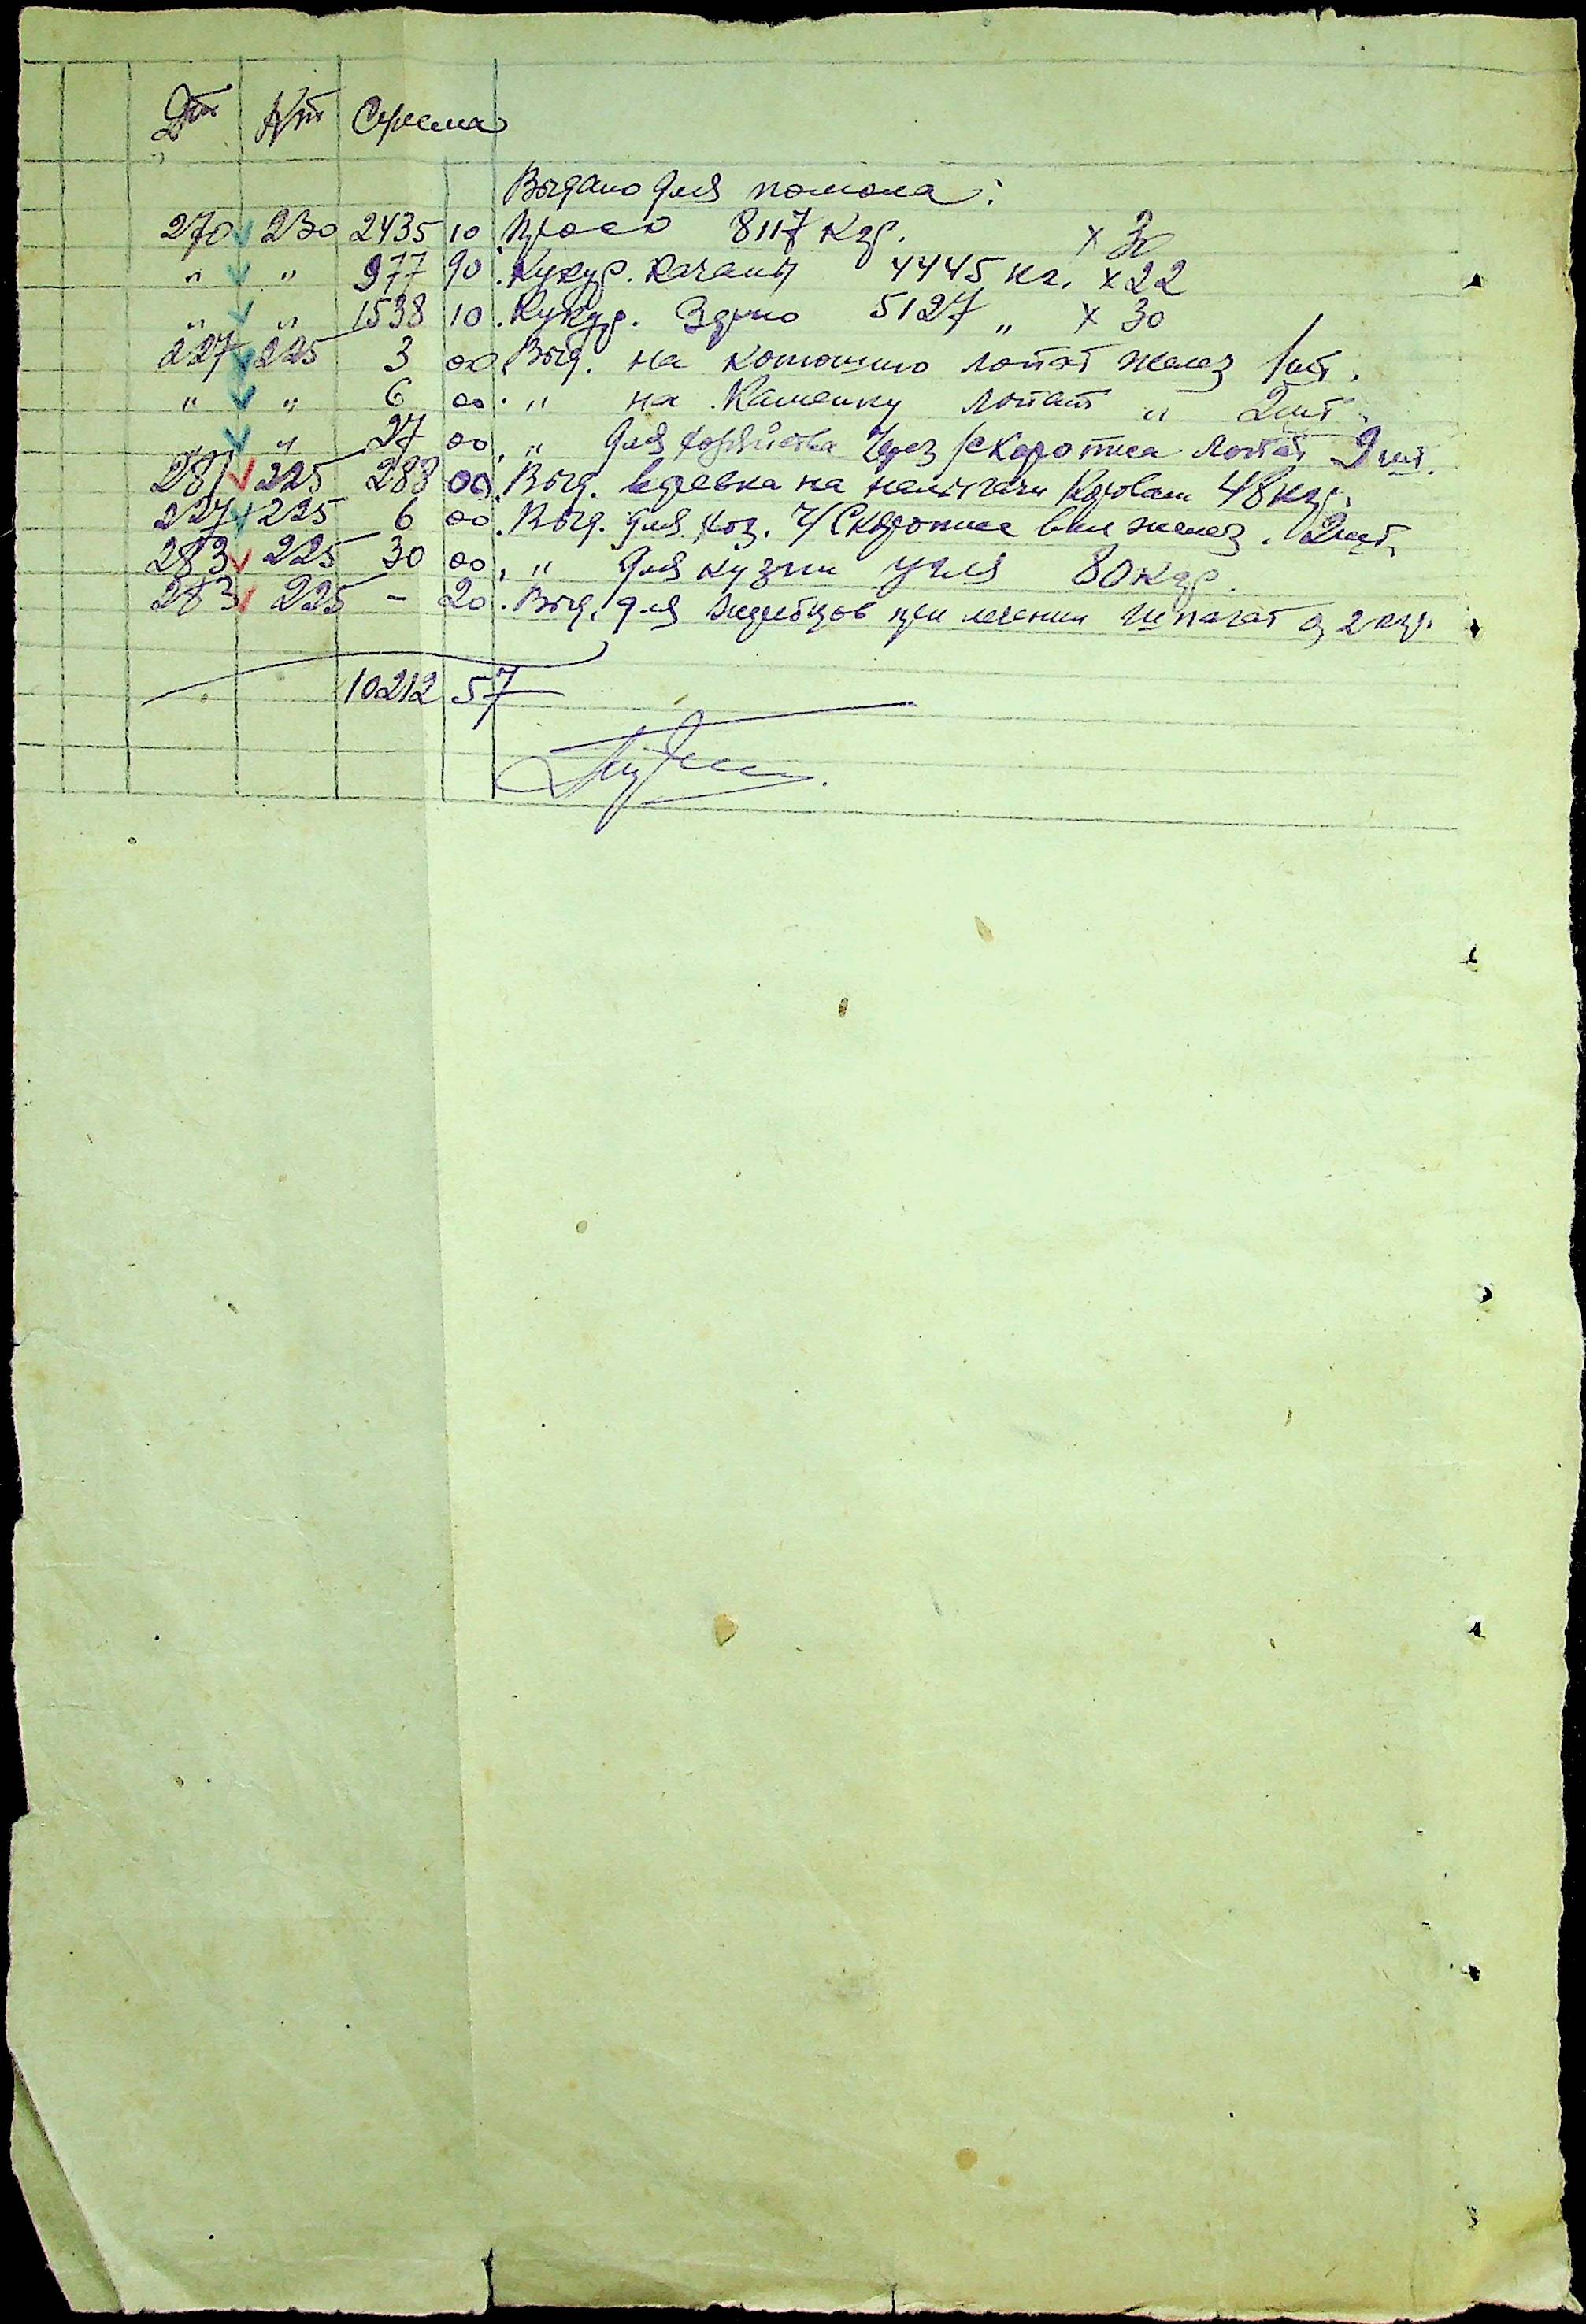 Дт Кт Сумма
Выдано для помола:
270 230 2435 10 Просо 8117 кгр. х 30
" " 977 90 Кукур. качаны 4445 кг. х 22
" " 1538 10 Кукур. Зерно 5127 " х 30
227 225 3 00 Выд. на конюшню лопат желез 1 шт.
" " 6 00 " на Каменку лопат " 2 шт.
" " 27 00 " для хозяйства Через лопат 9 шт.
281 225 288 00 Выд. веревка на налыгачи Коровам 48 кгр.
227 225 6 00 Выд. для хоз. Ч/ вил желез. 2 шт.
283 225 30 00 " для кузни угля 80 кгр.
283 225 - 20 Выд. для жеребцов при лечении шпагат 0,2 кгр.
10212 57